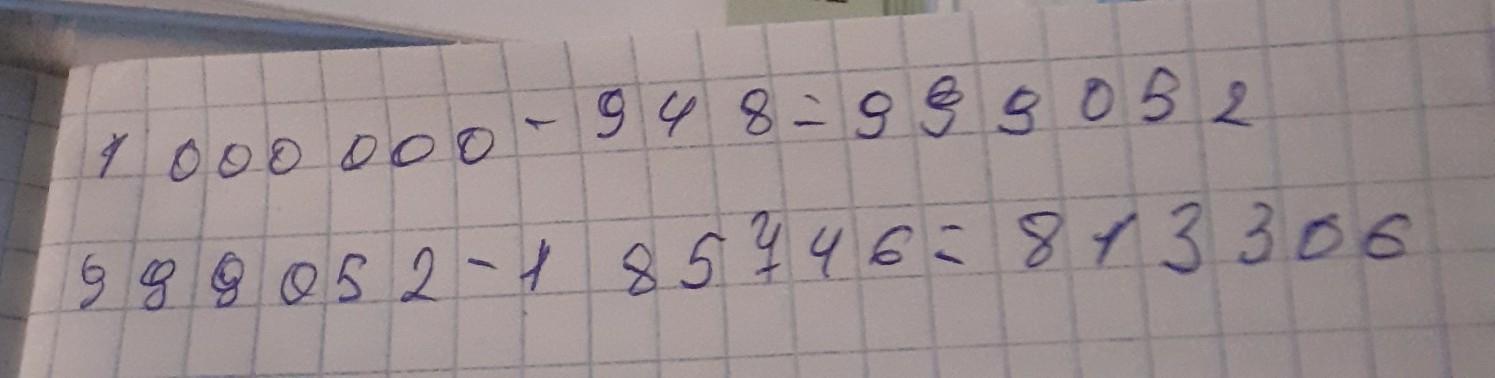 1 000 000 - 948 = 999 052
999 052 - 185 746 = 813 306